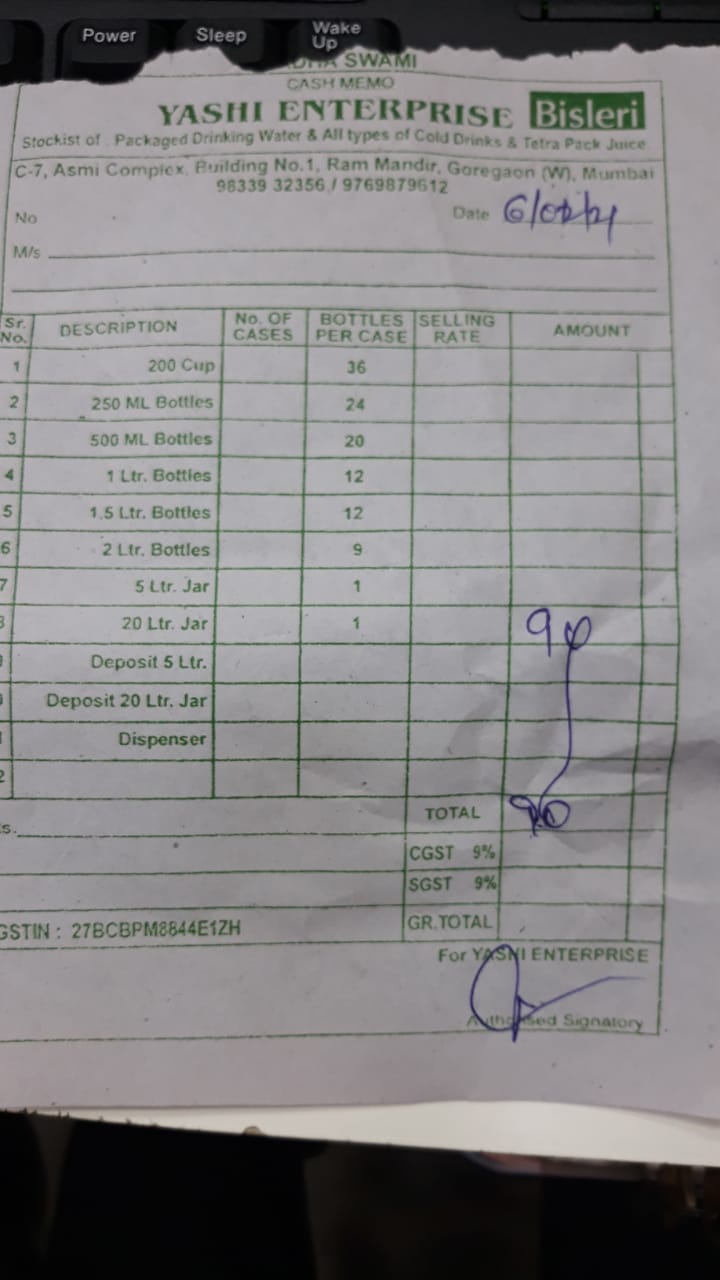 Power Sleep Wake Up
SWAMI
CASH MEMO
YASHI ENTERPRISE Bisleri
Stockist of : Packaged Drinking Water & All types of Cold Drinks & Tetra Pack Juice
C-7, Asmi Complex, Building No.1, Ram Mandir, Goregaon (W), Mumbai
98339 32356 / 9769879612
No Date 6/02/21
M/s
Sr. No. DESCRIPTION No. OF CASES BOTTLES PER CASE SELLING RATE AMOUNT
1 200 Cup 36
2 250 ML Bottles 24
3 500 ML Bottles 20
4 1 Ltr. Bottles 12
5 1.5 Ltr. Bottles 12
6 2 Ltr. Bottles 9
7 5 Ltr. Jar 1
20 Ltr. Jar 1 90
Deposit 5 Ltr.
Deposit 20 Ltr. Jar
Dispenser
2
s. TOTAL 90
CGST 9%
SGST 9%
GSTIN : 27BCBPM8844E1ZH GR.TOTAL
For YASHI ENTERPRISE
Authorised Signatory